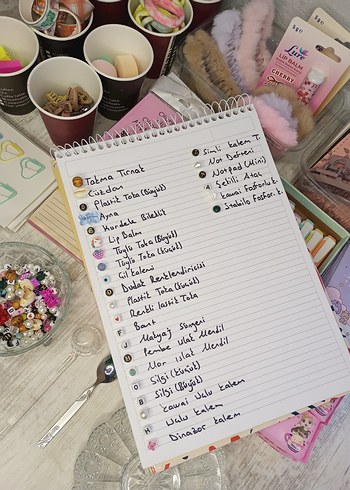 Takma Tırnak
Cüzdan
Plastik Toka (Büyük)
Ayna
Kurdele Bileklik
Lip Balm
Tüylü Toka (Büyük)
Tüylü Toka (Küçük)
Çil kalemi
Dudak Renklendiricisi
Plastik Toka (Küçük)
Renkli lastik Toka
Bant
Makyaj Süngeri
Pembe Islak Mendil
Mor Islak Mendil
Silgi (Küçük)
Silgi (Büyük)
Kawai Uçlu kalem
Uçlu kalem
Dinazor kalem
Simli kalem T.
Not Defteri
Notpad (Mini)
Şekilli Ataş
kawai Fosforlu k.
Stabilo Fosfor. k.
Lure
LIP BALM
CHERRY